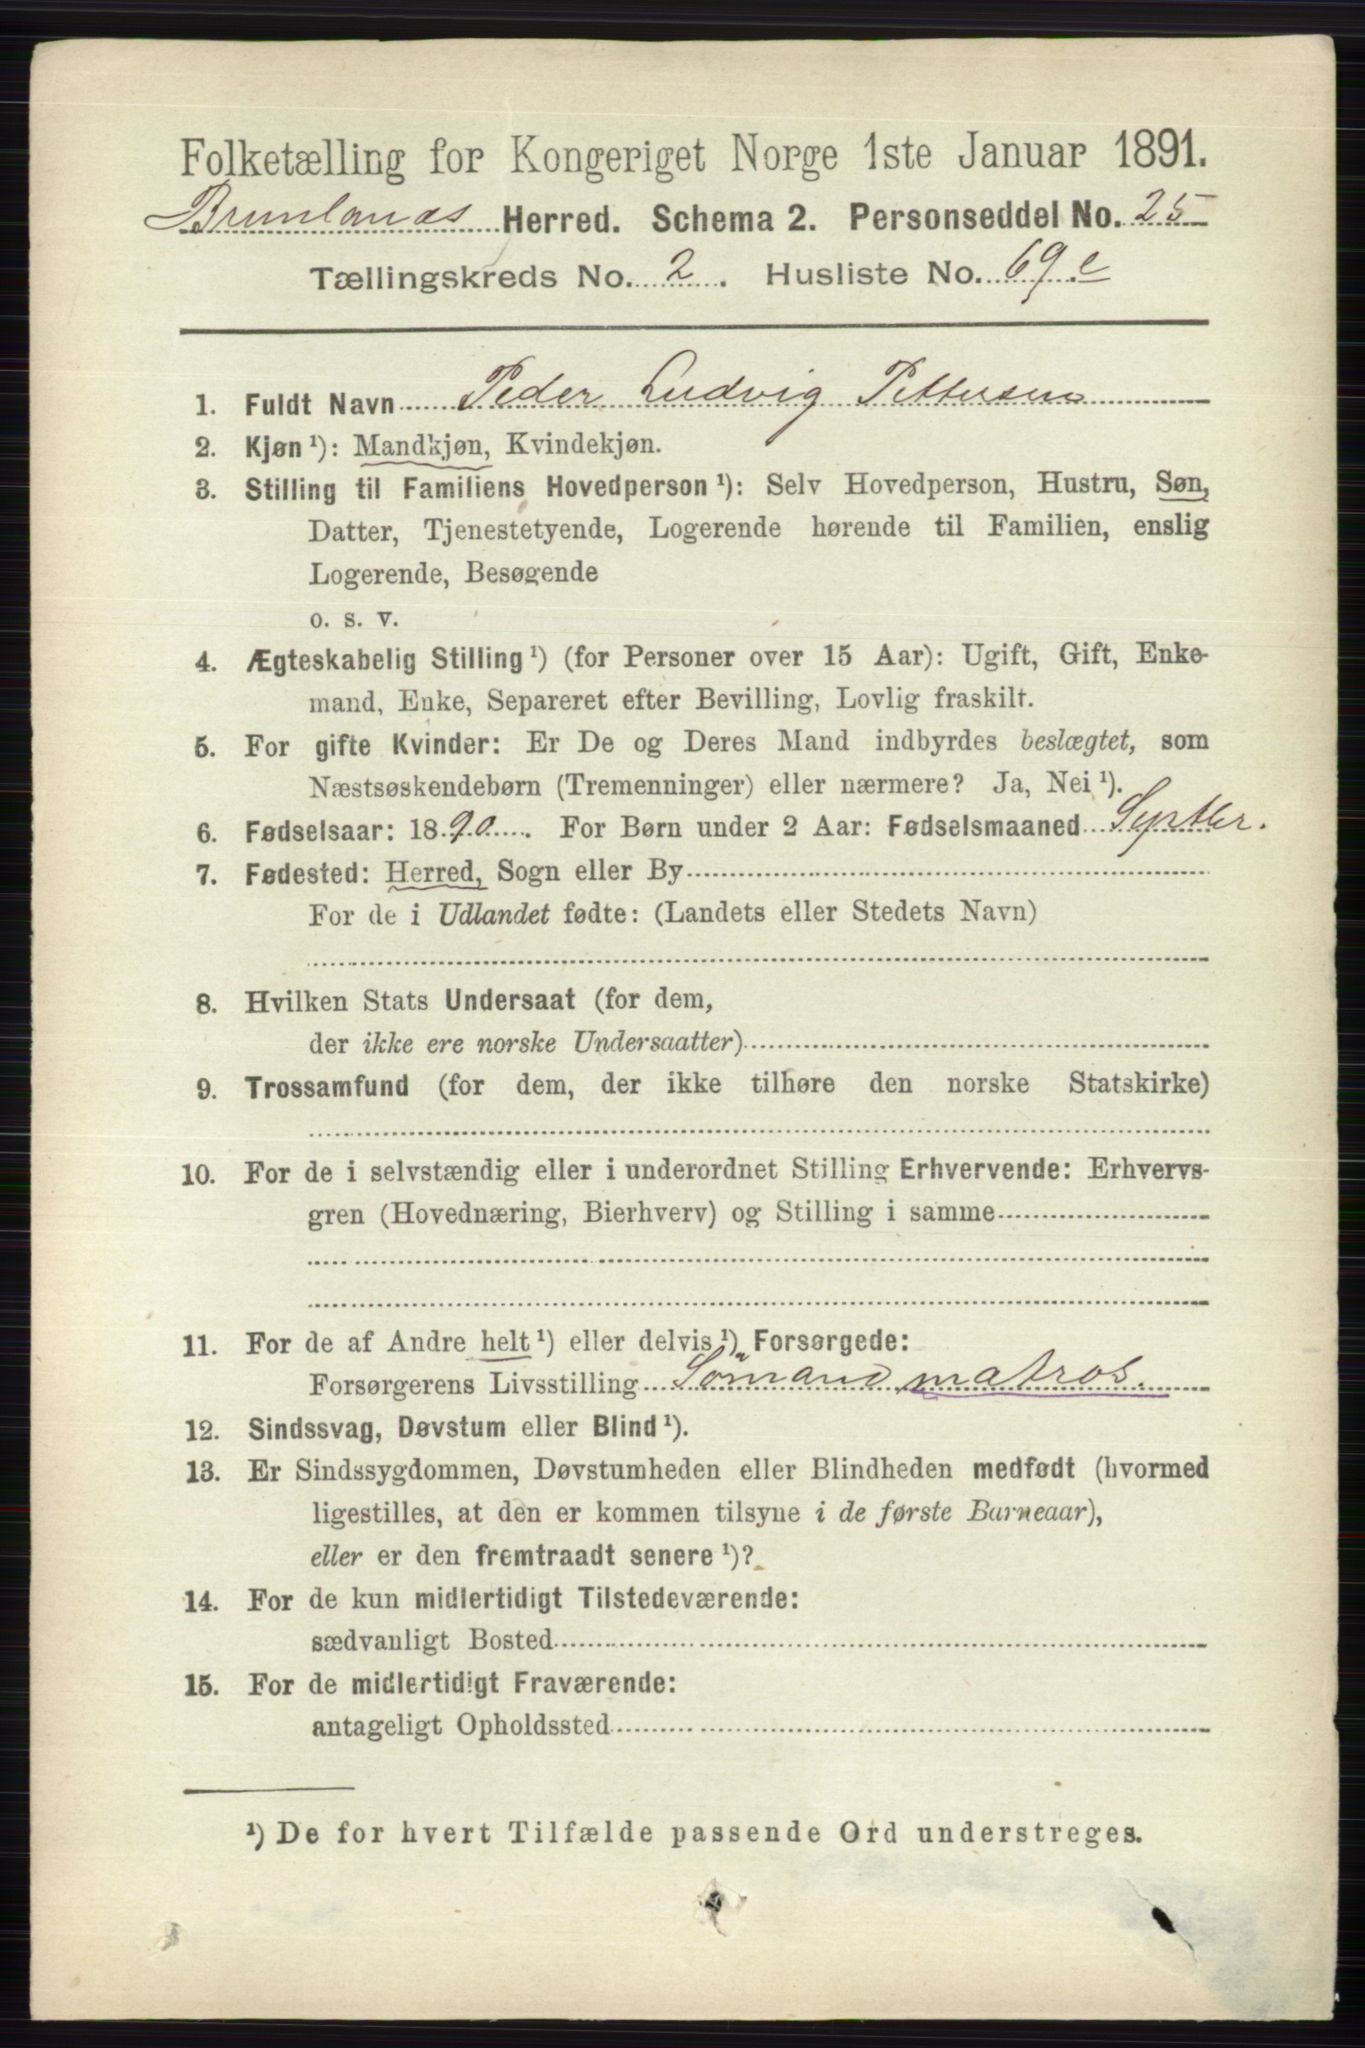 Folketælling for Kongeriget Norge 1ste Januar 1891.
Brunlanæs Herred. Schema 2. Personseddel No. 25
Tællingskreds No. 2. Husliste No. 69 e
1. Fuldt Navn Peder Ludvig Pettersen
2. Kjøn ¹): Mandkjøn, Kvindekjøn.
3. Stilling til Familiens Hovedperson ¹): Selv Hovedperson, Hustru, Søn,
Datter, Tjenestetyende, Logerende hørende til Familien, enslig
Logerende, Besøgende
o. s. v.
4. Ægteskabelig Stilling ¹) (for Personer over 15 Aar): Ugift, Gift, Enke-
mand, Enke, Separeret efter Bevilling, Lovlig fraskilt.
5. For gifte Kvinder: Er De og Deres Mand indbyrdes beslægtet, som
Næstsøskendebørn (Tremenninger) eller nærmere? Ja, Nei ¹).
6. Fødselsaar: 1890. For Børn under 2 Aar: Fødselsmaaned Septbr.
7. Fødested: Herred, Sogn eller By
For de i Udlandet fødte: (Landets eller Stedets Navn)
8. Hvilken Stats Undersaat (for dem,
der ikke ere norske Undersaatter)
9. Trossamfund (for dem, der ikke tilhøre den norske Statskirke)
10. For de i selvstændig eller i underordnet Stilling Erhvervende: Erhvervs-
gren (Hovednæring, Bierhverv) og Stilling i samme
11. For de af Andre helt ¹) eller delvis ¹) Forsørgede:
Forsørgerens Livsstilling Sömand matros.
12. Sindssvag, Døvstum eller Blind ¹).
13. Er Sindssygdommen, Døvstumheden eller Blindheden medfødt (hvormed
ligestilles, at den er kommen tilsyne i de første Barneaar),
eller er den fremtraadt senere ¹)?
14. For de kun midlertidigt Tilstedeværende:
sædvanligt Bosted
15. For de midlertidigt Fraværende:
antageligt Opholdssted
¹) De for hvert Tilfælde passende Ord understreges.